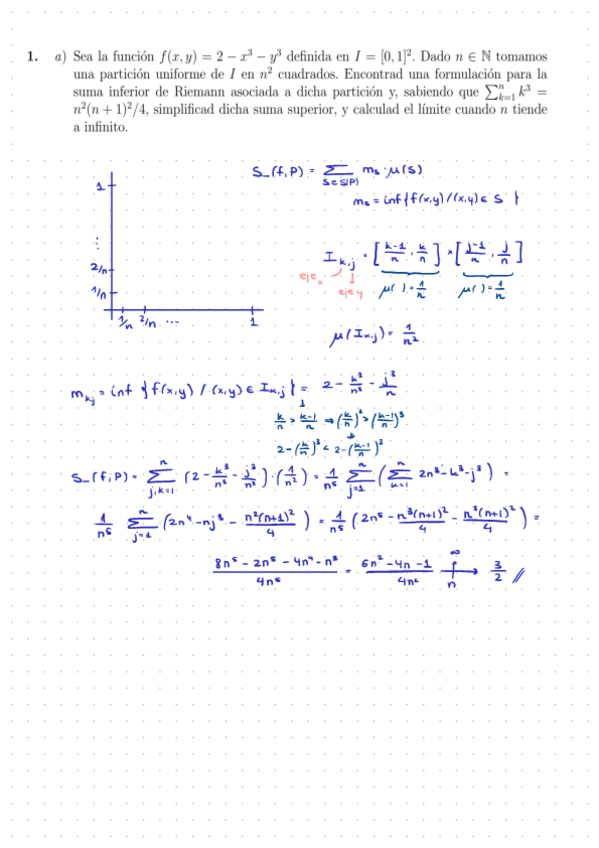 1. a) Sea la función f(x, y) = 2 − x³ − y³ definida en I = [0, 1]². Dado n ∈ ℕ tomamos
una partición uniforme de I en n² cuadrados. Encontrad una formulación para la
suma inferior de Riemann asociada a dicha partición y, sabiendo que ∑ₖ₌₁ⁿ k³ =
n²(n + 1)²/4, simplificad dicha suma superior, y calculad el límite cuando n tiende
a infinito.
S_(f,P) = ∑_{S∈S(P)} m_s · μ(S)
m_s = inf{f(x,y) / (x,y) ∈ S}
1
⋮
2/n
1/n
1/n 2/n ... 1
I_{k,j} = [(k-1)/n, k/n] × [(j-1)/n, j/n]
eje x
eje y
μ( ) = 1/n μ( ) = 1/n
μ(I_{k,j}) = 1/n²
m_{kj} = inf {f(x,y) / (x,y) ∈ I_{k,j}} = 2 - k³/n³ - j³/n
k/n > (k-1)/n ⇒ (k/n)³ > ((k-1)/n)³
2 - (k/n)³ < 2 - ((k-1)/n)³
S_(f,P) = ∑_{j,k=1}^{n} (2 - k³/n³ - j³/n³) · (1/n²) = 1/n⁵ ∑_{j=1}^{n} (∑_{k=1}^{n} 2n³ - k³ - j³) =
1/n⁵ ∑_{j=1}^{n} (2n⁴ - nj³ - n²(n+1)²/4) = 1/n⁵ (2n⁵ - n³(n+1)²/4 - n³(n+1)²/4) =
(8n⁵ - 2n⁵ - 4n⁴ - n³)/4n⁵ = (6n² - 4n - 1)/4n² → 3/2 //
n ∞